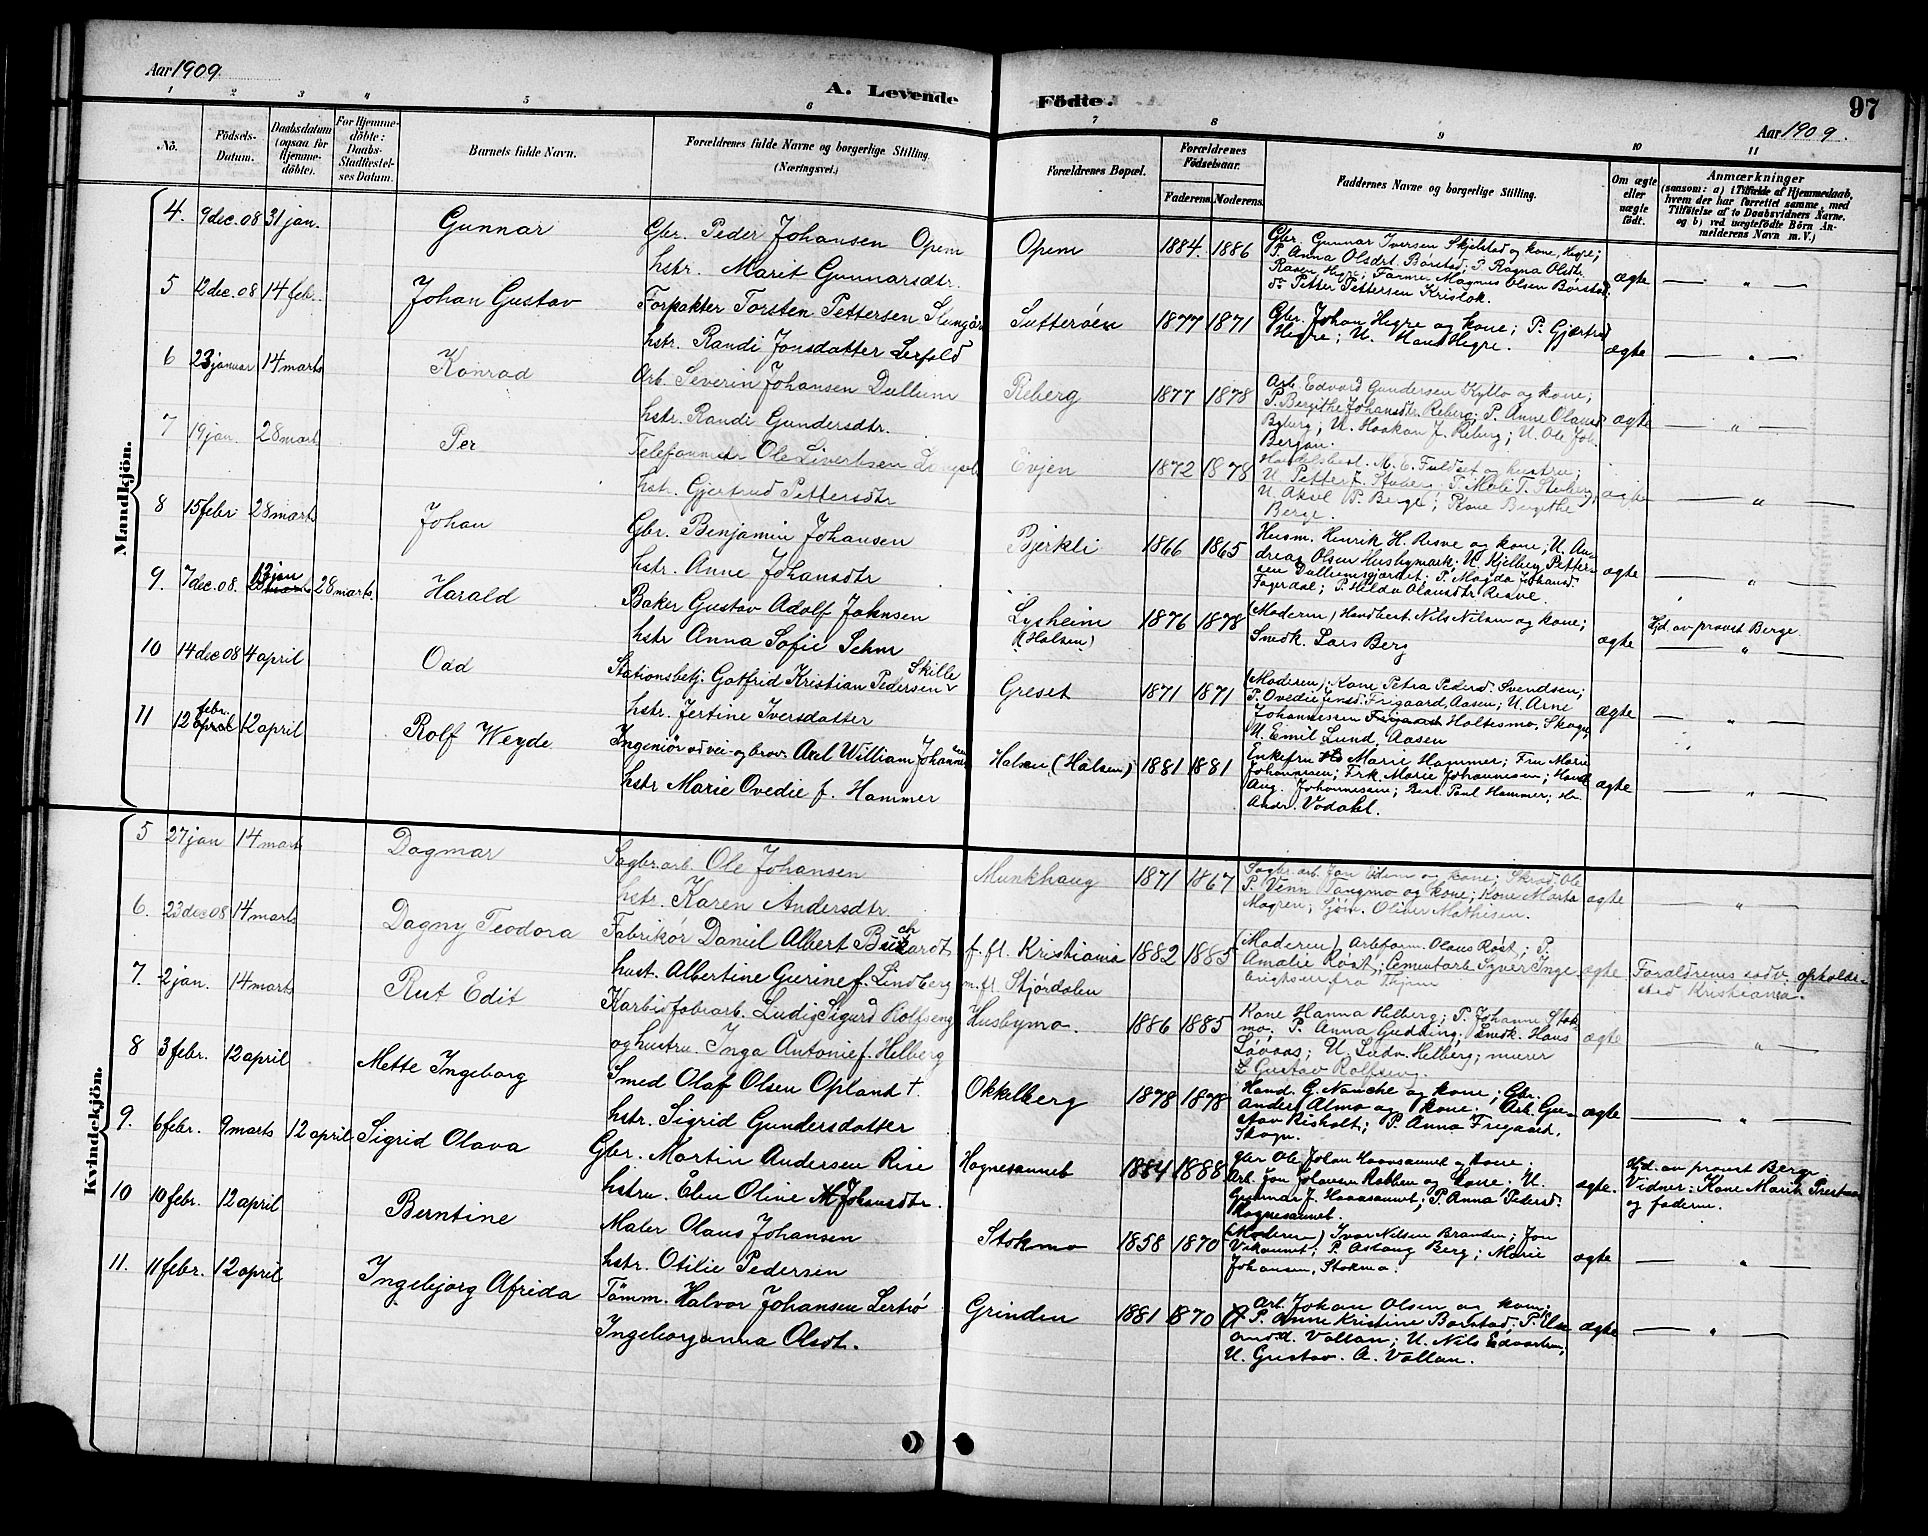 Aar 1909.
A. Levende Födte.
Aar 1909.
97
1 2 3 4 5 6 7 8 9 10 11
No.
Födsels-Datum.
Daabsdatum (ogsaa for Hjemme-döbte).
For Hjemme-döbte: Daabs-Stadfæstelses Datum.
Barnets fulde Navn.
Forældrenes fulde Navne og borgerlige Stilling. (Næringsvei.)
Forældrenes Bopæl.
Forældrenes Födselsaar.
Faderens. Moderens.
Faddernes Navne og borgerlige Stilling.
Om ægte eller uægte födt.
Anmærkninger (saasom: a) i Tilfælde af Hjemmedaab, hvem der har forrettet samme, med Tilföielse af to Daabsvidners Navne, og b) ved uægtefödte Börn Anmelderens Navn m. V.)
Mandkjön.
4. 9 dec. 08 31 jan. Gunnar Gbr. Peder Johansen Opem Opem 1884. 1886 Gbr. Gunnar Iversen Skjelstad og kone, Hegre;
hstr. Marit Gunnarsdtr. P. Anna Olsdrt. Börstad; P. Ragna Olsdtr.
Hegre; Farmer Magnus Olsen Börstad; ægte — " —
do Petter Pettersen
5 12 dec. 08 14 feb. Johan Gustav Forpakter Torsten Pettersen Sutteröen 1877 1871 Gbr. Johan Hegre og kone; P. Gjertrud
hstr. Randi Jonsdatter Lerfald Hegre; U. Hans Hegre. ægte — " —
6 23 januar 14 marts Konrad Arb. Severin Johansen Dullum Reberg 1877 1878 Arb. Edvard Gundersen Kyllo og kone;
hstr. Randi Gundersdtr. P. Bergithe Johansdtr. Reberg; P. Anne ægte — " —
U. Haakon J. Reberg; U. Ole Joh.
Bergan.
7 19 jan. 28 marts Per Ole Evjen 1872 1878 M. E. Fuldset og hustru;
hstr. Gjertrud Pettersdtr U. Petter J. Stuberg; ægte — " —
U. Aksel P. Berge; Kone Bergithe
Berge.
8 15 febr. 28 marts Johan Gbr. Benjamin Johansen Bjerkli 1866 1865 Husm. Henrik H. Resve og kone; U. An-
hstr. Anne Johansdtr dreas Olsen Husbymark; U. Petter-
sen P. Magda Johansd. ægte — " —
Fagerdal; P. Hilda Olausdtr Resve.
9. 7 dec. 08. 13 jan 28 marts Harald Baker Gustav Adolf Johnsen Lysheim (Halsen) 1876 1878 (Moderen) Handbest. Nils Nilsen og kone; ægte Hjd. av provst Berge
hstr Anna Sofie Sehm Snedk. Lars Berg — " —
10 14 dec 08 4 april Odd Stationsbetj. Gotfrid Kristian Pedersen Skille Greset 1871 1871 (Moderen); Kone Petra Pedersd. Svendsen;
hstr. Jertine Iversdatter P. Ovedie Frigaard, Aasen; U. Arne ægte — " —
Johannessen Holtesmo, Skogn;
U. Emil Lund, Aasen
11 12 febr. april 12 april Rolf Weyde Ingeniör ved vei- og brov. Axel William Johannessen Halsen (Halsen) 1881 1881 Enkefru Marie Hammer; Fru Marie
hstr Marie Ovedie f. Hammer Johannessen; Frk. Marie Johannessen; ægte — " —
Aug. Johannessen; Best. Paul Hammer;
Andr. Vodahl.
Kvindekjön.
5 27 jan 14 marts Dagmar Sagbr.arb. Ole Johansen Munkhaug 1871 1867 Sagbr. arb. Jon Edem og kone;
hstr. Karen Andersdtr. P. Venn Tangmo og kone; Kone Marta ægte — " —
Oliver Mathisen.
6. 23 dec 08 14 marts Dagny Teodora Fabrikör Daniel Albert f. fl. Kristiania 1882 1885 (Moderen) Olaus Röst; P.
hust. Albertine Gurine f. Lindberg m. fl. Stjördalen Amalie Röst; Cementarb. Syver Inge- ægte Forældrenes sedv. opholds-
brigtsen fra sted Kristiania.
7. 2 jan. 14 marts Rut Edit Karbidfabr.arb. Ludig Sigurd Rolfseng Husbymo. 1886 1885 Kone Hanna Helberg; P. Johanne Stok-
og hustru. Inga Antonie f. Helberg mo; P. Anna Gudding; Snedk. Hans ægte — " —
U. Ludv. Helberg; murer
Gustav Rolfseng.
8 3 febr. 12 april Mette Ingeborg Smed Olaf Olsen Opland † Okkelberg 1878 1878 Hand. G. Nanche og kone; Gbr.
hstr. Sigrid Gundersdatter Anders Almo og kone. Arb. Gu- ægte — " —
stav Risholt; P. Anna Frigaard,
Skogn.
9. 6 febr. 9 marts 12 april Sigrid Olava Gbr. Martin Andersen Rise Hognesaunet 1884 1888 gbr Ole Johan og kone;
hstru. Elen Oline Johnsdtr. Arb. Jon Johansen og kone. U. ægte. Hjd. av provst Berge.
Gunnar J. P. Anna Pedersd. Vidner: Kone Marit
Hognesaunet. og faderen.
10 10 febr. 12 april Berntine Maler Olaus Johansen Stokmo 1858 1870 (Moderen) Ivar Nilsen Branden; Jon
hstr. Otilie Pedersen P. Aslaug Berg; Marie ægte — " —
Johansen, Stokmo.
11. 11 febr. 12 april Ingebjorg Afrida Tömm. Halvor Johansen Lertrö Grinden 1881 1870 Arb. Johan Olsen og kone;
Ingeborganna Olsdt. P. Anne Kristine Börstad; ægte — " —
Vollan; U. Nils Edvardsen;
U. Gustav. A. Vollan.